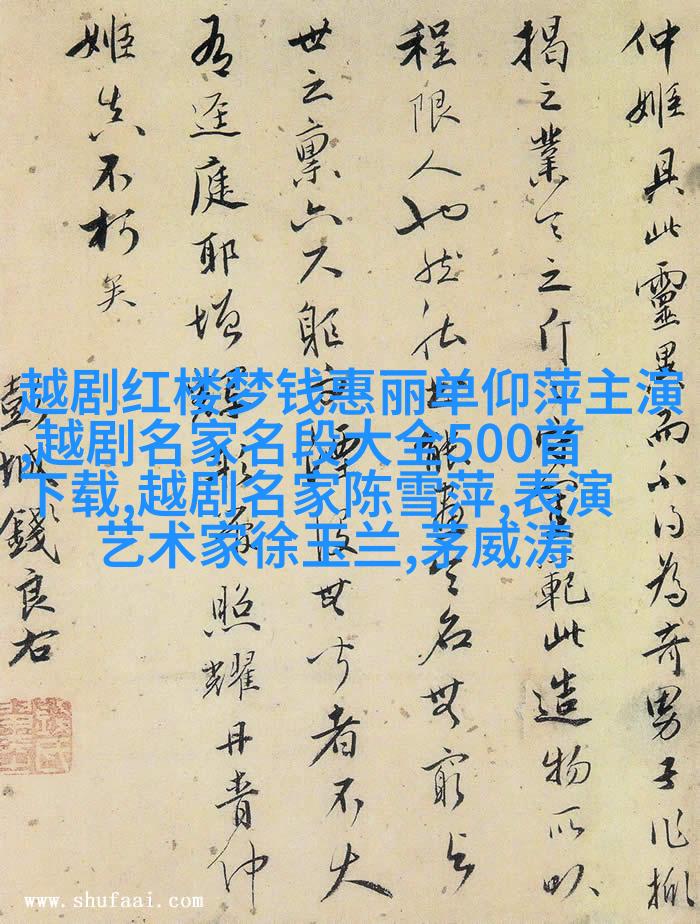 仲姬具此靈異而不得為奇男子作掀
揭之業 之斤 室 範此造物所以
程限人也然 能畫 名無窮与
世之稟六尺軀 湮没無聞者不大
有逕庭耶增 照耀丹青仲
姬真不朽矣
彭城錢良右
越剧红楼梦钱惠丽单仰萍主演
,越剧名家名段大全500首
下载,越剧名家陈雪萍,表演
艺术家徐玉兰,茅威涛
www.shufaai.com